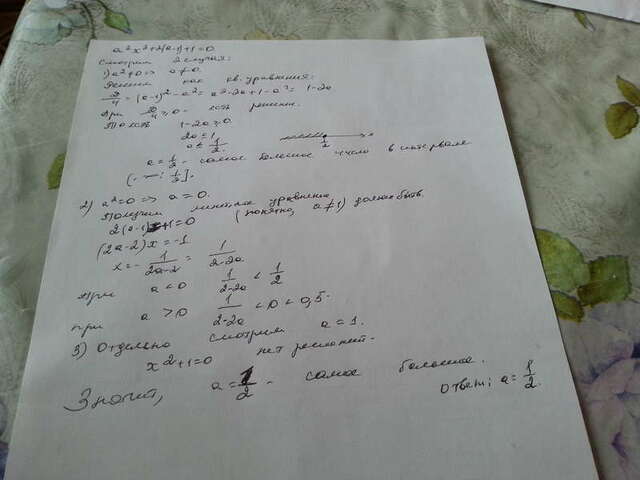 a²x²+2(a-1)+1=0.
Смотрим 2 случая:
1) a²≠0 => a≠0.
Решим как кв. уравнения:
D/4 = (a-1)²-a² = a²-2a+1-a² = 1-2a
При D/4 ≥ 0 - есть решения.
То есть 1-2a ≥ 0.
2a ≤ 1
a ≤ 1/2. 1/2
a = 1/2 - самое большое число в интервале
(-∞; 1/2].
2) a²=0 => a=0.
Получим линейное уравнение
2(a-1)x+1=0 (понятно, a≠1) должно быть.
(2a-2)x=-1
x=- 1/(2a-2) = 1/(2-2a)
при a<0 1/(2-2a) < 1/2
при a>0 1/(2-2a) <0<0,5.
3) Отдельно смотрим a=1.
x²+1=0 нет решений.
Значит, a=1/2 - самое большое.
Ответ: a=1/2.